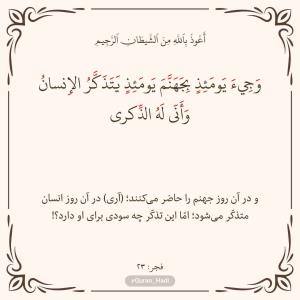 أَعُوذُ بِٱللَّهِ مِنَ ٱلشَّيطَانِ ٱلرَّجِيمِ
وَجِيءَ يَومَئِذٍ بِجَهَنَّمَ يَومَئِذٍ يَتَذَكَّرُ الإِنسانُ
وَأَنّى لَهُ الذِّكرى
و در آن روز جهنم را حاضر می‌کنند؛ (آری) در آن روز انسان
متذکّر می‌شود؛ امّا این تذکّر چه سودی برای او دارد؟!
فجر: ۲۳
@Quran_Hadi